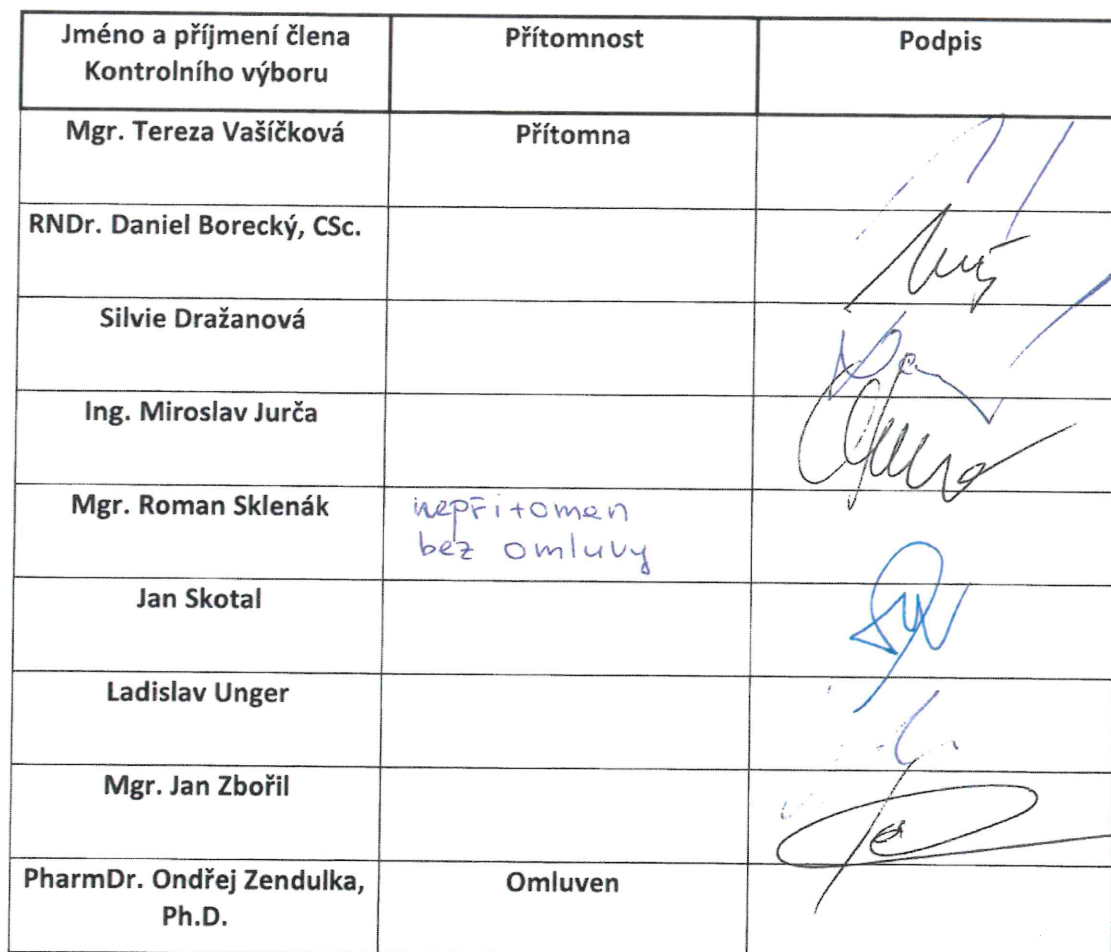 Jméno a příjmení člena
Kontrolního výboru
Přítomnost
Podpis
Mgr. Tereza Vašíčková
Přítomna
RNDr. Daniel Borecký, CSc.
Silvie Dražanová
Ing. Miroslav Jurča
Mgr. Roman Sklenák
nepřítomen
bez omluvy
Jan Skotal
Ladislav Unger
Mgr. Jan Zbořil
PharmDr. Ondřej Zendulka,
Ph.D.
Omluven